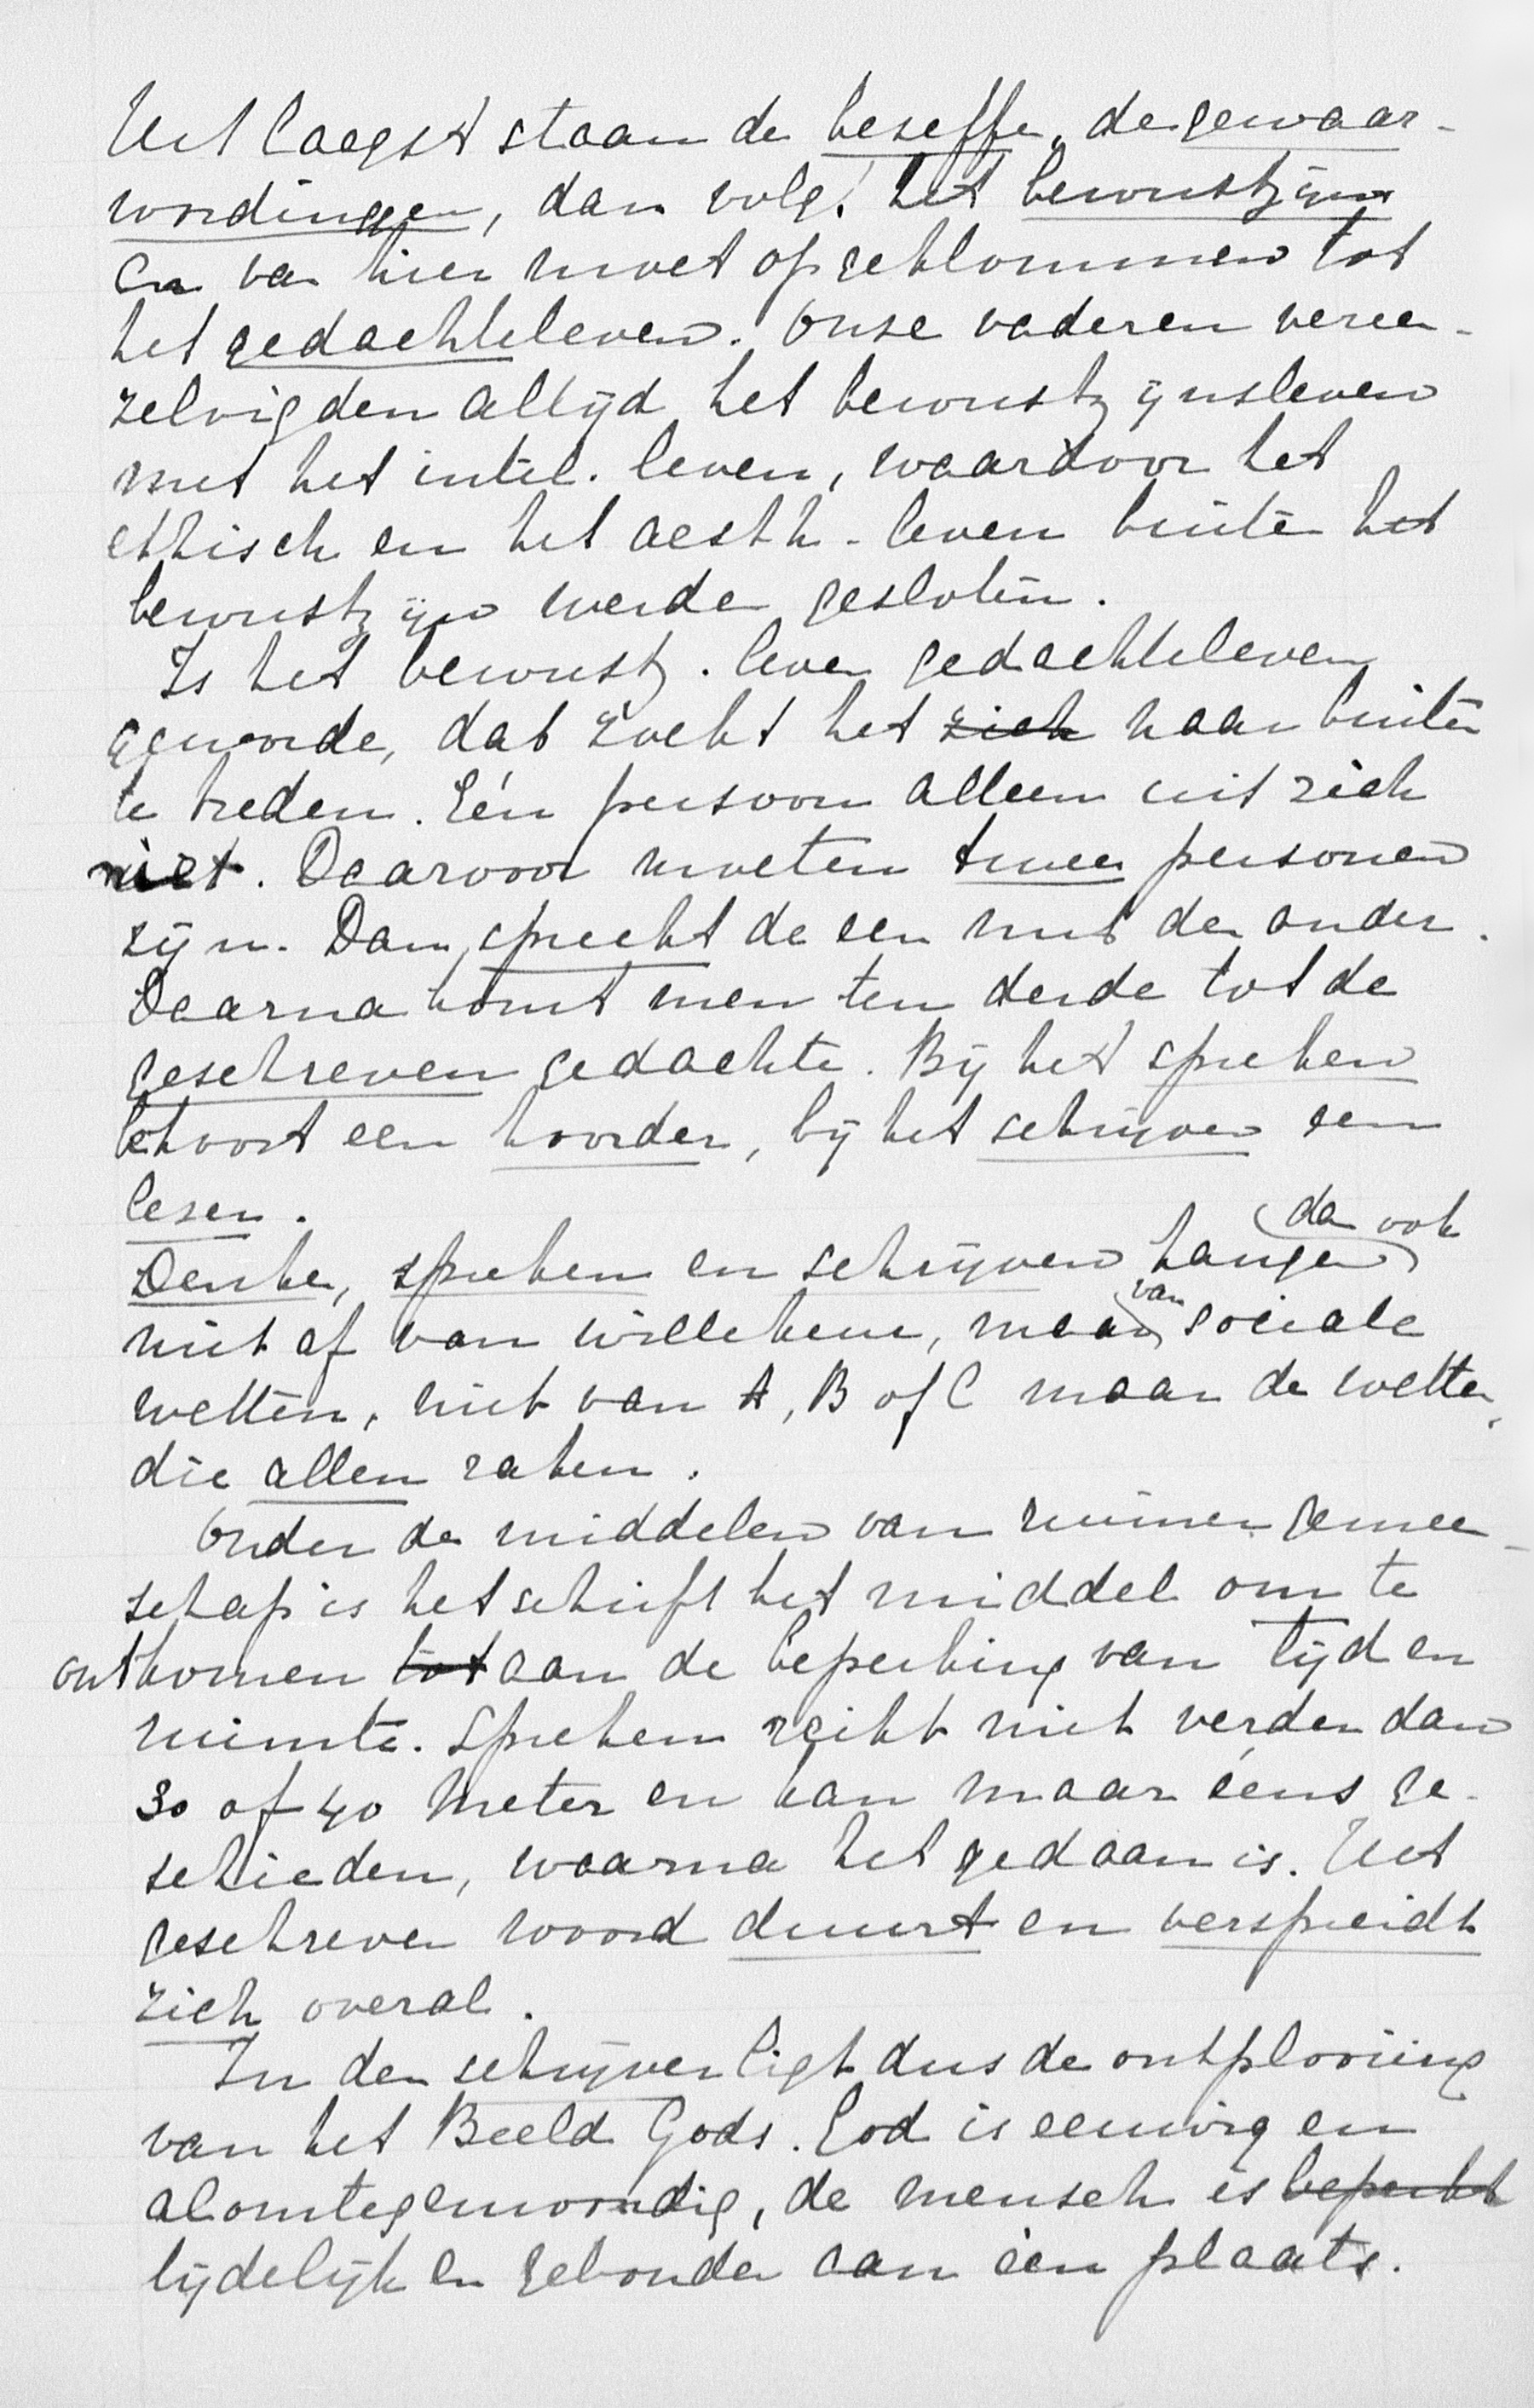 Het laagst staan de beseffen, de gewaar-
wordingen, dan volgt het bewustzijn
en van hier moet opgeklommen tot
het gedachteleven. Onze vaderen vereen-
zelvigden altijd het bewustzijnsleven
met het intel. leven, waardoor het
ethisch en het aesth. leven buiten het
bewustzijn werden gesloten.
Is het bewustz. leven gedachteleven
geworden, dat zoekt het zich naar buiten
te treden. Eén persoon alleen uit zich
niet. Daarvoor moeten twee personen
zijn. Dan spreekt de een met den ander.
Daarna komt men ten derde tot de
geschreven gedachte. Bij het spreken
behoort een hoorder, bij het schrijven een
lezer.
Denken, spreken en schrijven hangen dan ook
niet af van willekeur, maar van sociale
wetten, niet van A, B of C maar de wetten,
die allen raken.
Onder de middelen van ruimer gemeen-
schap is het schrift het middel om te
ontkomen tot aan de beperking van tijd en
ruimte. Spreken reikt niet verder dan
30 of 40 meter en kan maar ééns ge-
schieden, waarna het gedaan is. Het
geschreven woord duurt en verspreidt
zich overal.
In den schrijver ligt dus de ontplooiing
van het Beeld Gods. God is eeuwig en
alomtegenwoordig, de mensch is beperkt
tijdelijk en gebonden aan één plaats.